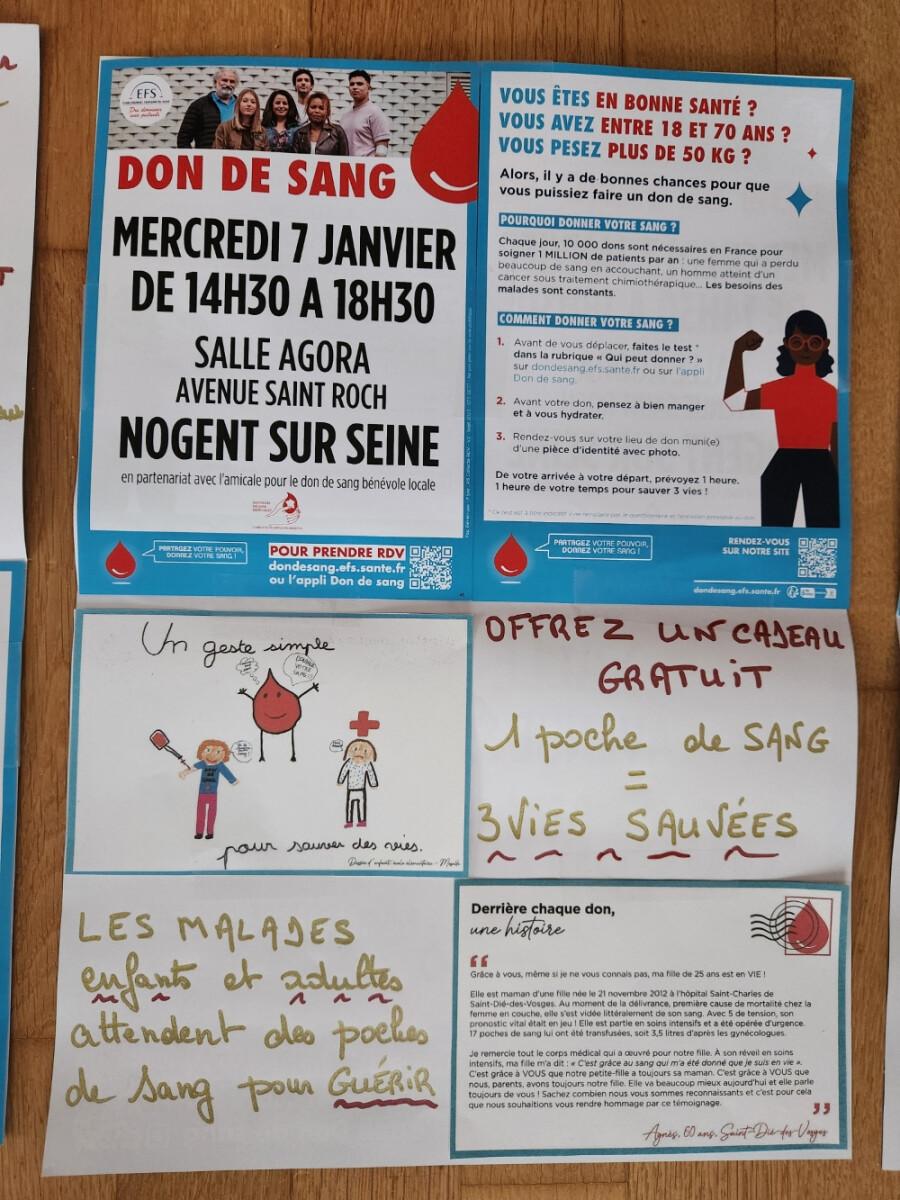 EFS
DON DE SANG
MERCREDI 7 JANVIER
DE 14H30 A 18H30
SALLE AGORA
AVENUE SAINT ROCH
NOGENT SUR SEINE
en partenariat avec l'amicale pour le don de sang bénévole locale
PARTAGEZ VOTRE POUVOIR,
DONNEZ VOTRE SANG !
POUR PRENDRE RDV
dondesang.efs.sante.fr
ou l'appli Don de sang
VOUS ÊTES EN BONNE SANTÉ ?
VOUS AVEZ ENTRE 18 ET 70 ANS ?
VOUS PESEZ PLUS DE 50 KG ?
Alors, il y a de bonnes chances pour que
vous puissiez faire un don de sang.
POURQUOI DONNER VOTRE SANG ?
Chaque jour, 10 000 dons sont nécessaires en France pour
soigner 1 MILLION de patients par an : une femme qui a perdu
beaucoup de sang en accouchant, un homme atteint d'un
cancer sous traitement chimiothérapique... Les besoins des
malades sont constants.
COMMENT DONNER VOTRE SANG ?
1. Avant de vous déplacer, faites le test *
dans la rubrique « Qui peut donner ? »
sur dondesang.efs.sante.fr ou sur l'appli
Don de sang.
2. Avant votre don, pensez à bien manger
et à vous hydrater.
3. Rendez-vous sur votre lieu de don muni(e)
d'une pièce d'identité avec photo.
De votre arrivée à votre départ, prévoyez 1 heure.
1 heure de votre temps pour sauver 3 vies !
PARTAGEZ VOTRE POUVOIR,
DONNEZ VOTRE SANG !
RENDEZ-VOUS
SUR NOTRE SITE
dondesang.efs.sante.fr
Un geste simple
pour sauver des vies.
OFFREZ UN CADEAU
GRATUIT
1 poche de SANG
=
3 ViES SAUVÉES
LES MALADES
enfants et adultes
attendent des poches
de sang pour GUÉRIR
Derrière chaque don,
une histoire
Grâce à vous, même si je ne vous connais pas, ma fille de 25 ans est en VIE !
Elle est maman d'une fille née le 21 novembre 2012 à l'hôpital Saint-Charles de
Saint-Dié-des-Vosges. Au moment de la délivrance, première cause de mortalité chez la
femme en couche, elle s'est vidée littéralement de son sang. Avec 5 de tension, son
pronostic vital était en jeu ! Elle est partie en soins intensifs et a été opérée d'urgence.
17 poches de sang lui ont été transfusées, soit 3,5 litres d'après les gynécologues.
Je remercie tout le corps médical qui a œuvré pour notre fille. À son réveil en soins
intensifs, ma fille m'a dit : « C'est grâce au sang qui m'a été donné que je suis en vie ».
C'est grâce à VOUS que notre petite-fille a toujours sa maman. C'est grâce à VOUS que
nous, parents, avons toujours notre fille. Elle va beaucoup mieux aujourd'hui et elle parle
toujours de vous ! Sachez combien nous vous sommes reconnaissants et c'est pour cela
que nous souhaitions vous rendre hommage par ce témoignage.
Agnès, 60 ans, Saint-Dié-des-Vosges